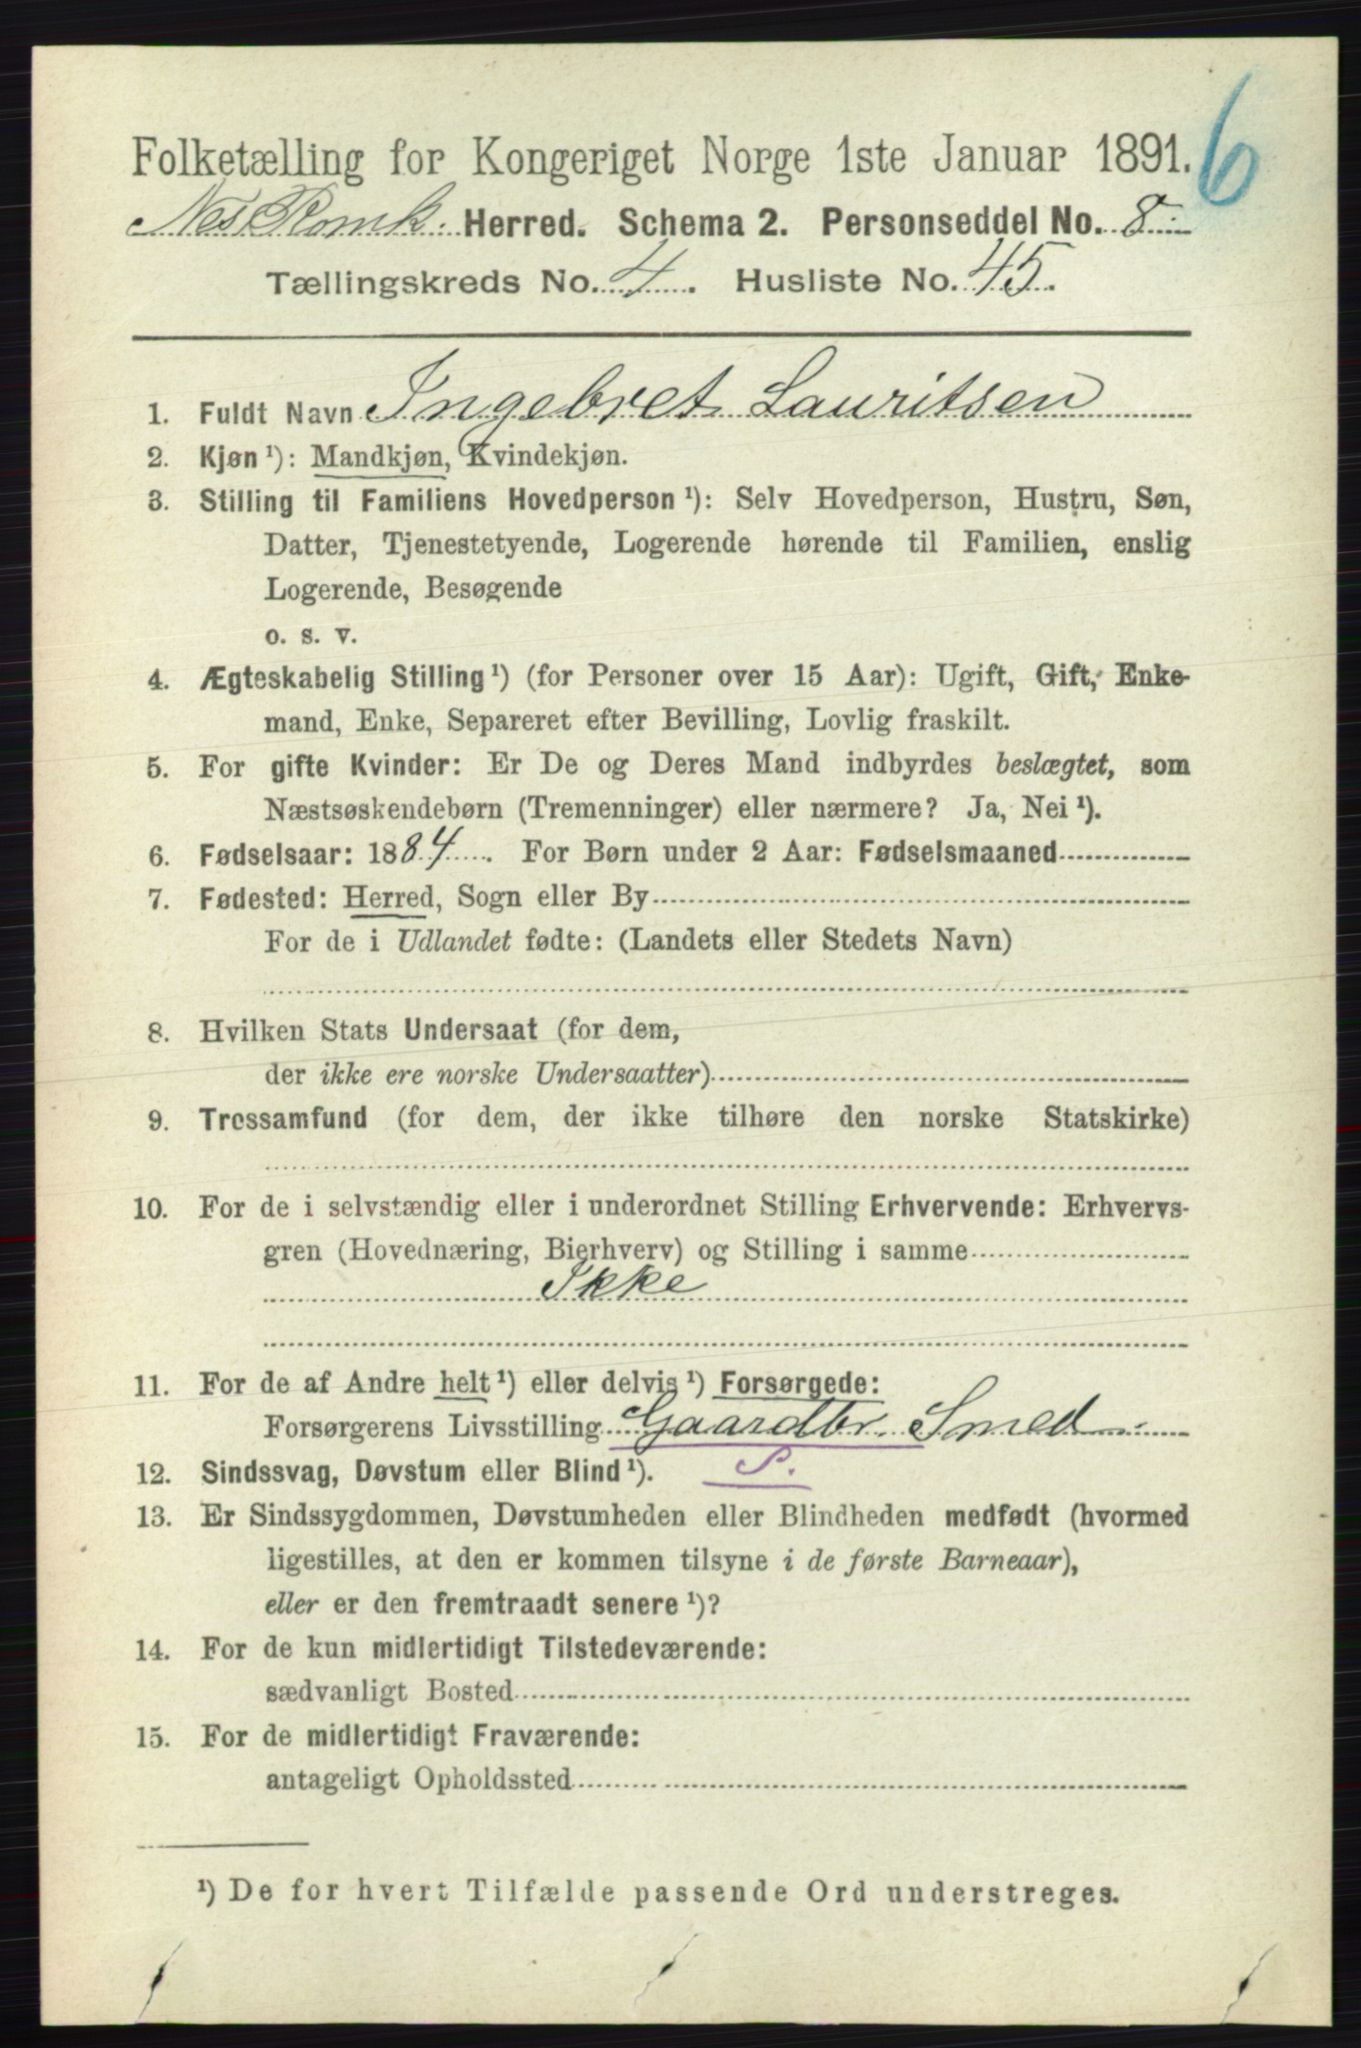 6
Folketælling for Kongeriget Norge 1ste Januar 1891.
Nes Romk. Herred. Schema 2. Personseddel No. 8.
Tællingskreds No. 4. Husliste No. 45.
1. Fuldt Navn Ingebret Lauritsen
2. Kjøn ¹): Mandkjøn, Kvindekjøn.
3. Stilling til Familiens Hovedperson ¹): Selv Hovedperson, Hustru, Søn,
Datter, Tjenestetyende, Logerende hørende til Familien, enslig
Logerende, Besøgende
o. s. v.
4. Ægteskabelig Stilling ¹) (for Personer over 15 Aar): Ugift, Gift, Enke-
mand, Enke, Separeret efter Bevilling, Lovlig fraskilt.
5. For gifte Kvinder: Er De og Deres Mand indbyrdes beslægtet, som
Næstsøskendebørn (Tremenninger) eller nærmere? Ja, Nei ¹).
6. Fødselsaar: 1884. For Børn under 2 Aar: Fødselsmaaned
7. Fødested: Herred, Sogn eller By
For de i Udlandet fødte: (Landets eller Stedets Navn)
8. Hvilken Stats Undersaat (for dem,
der ikke ere norske Undersaatter)
9. Trossamfund (for dem, der ikke tilhøre den norske Statskirke)
10. For de i selvstændig eller i underordnet Stilling Erhvervende: Erhvervs-
gren (Hovednæring, Bierhverv) og Stilling i samme
Ikke
11. For de af Andre helt ¹) eller delvis ¹) Forsørgede:
Forsørgerens Livsstilling Gaardbr. Smed
12. Sindssvag, Døvstum eller Blind ¹). S.
13. Er Sindssygdommen, Døvstumheden eller Blindheden medfødt (hvormed
ligestilles, at den er kommen tilsyne i de første Barneaar),
eller er den fremtraadt senere ¹)?
14. For de kun midlertidigt Tilstedeværende:
sædvanligt Bosted
15. For de midlertidigt Fraværende:
antageligt Opholdssted
¹) De for hvert Tilfælde passende Ord understreges.